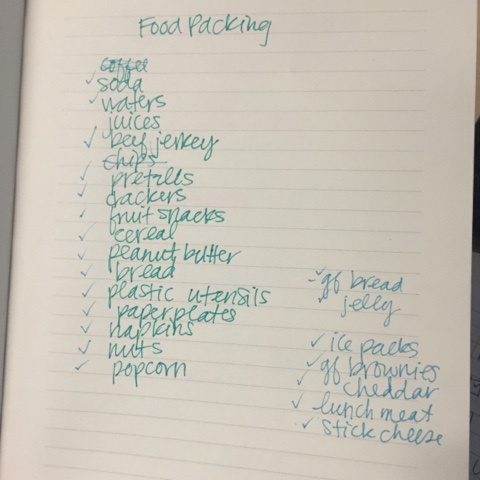 Food Packing
coffee
✓ soda
✓ waters
juices
✓ beef jerkey
✓ chips
✓ pretzlls
✓ crackers
✓ fruit snacks
✓ cereal
✓ peanut butter
✓ bread
✓ plastic utensils
✓ paper plates
✓ napkins
✓ nuts
✓ popcorn
✓ gf bread
✓ jelly
✓ ice packs
✓ gf brownies
✓ cheddar
✓ lunch meat
✓ stick cheeze